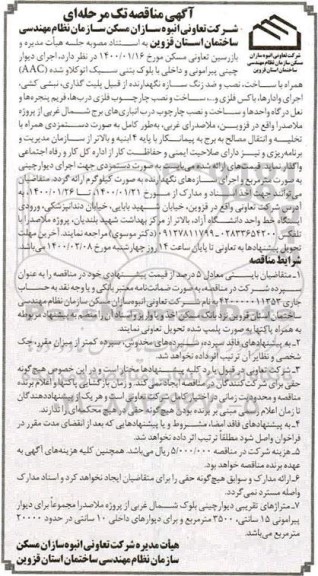 آگهی مناقصه تک مرحله‌ای
شرکت تعاونی انبوه سازان
مسکن سازمان نظام مهندسی
ساختمان استان قزوین
شرکت تعاونی انبوه سازان مسکن سازمان نظام مهندسی
ساختمان استان قزوین به استناد مصوبه جلسه هیأت مدیره و
بازرسین تعاونی مسکن مورخ ۱۴۰۰/۰۱/۱۶ در نظر دارد، اجرای دیوار
چینی پیرامونی و داخلی با بلوک بتنی سبک اتوکلاو شده (AAC)
همراه با ساخت، نصب و ضد زنگ سازه نگهدارنده از قبیل پلیت گذاری، نبشی کشی،
اجرای وادارها، باکس فلزی و... ساخت و نصب چارچوب فلزی درب‌ها، فریم پنجره‌ها و
نعل درگاه واحدها و ساخت و نصب چارچوب درب انباری‌های برج شمال غربی از پروژه
ملاصدرا واقع در قزوین، ملاصدرای غربی، به‌طور کامل به صورت دستمزدی همراه با
تخلیه و انتقال مصالح به برج به پیمانکار با پایه ۴ ابنیه و بالاتر از سازمان مدیریت و
برنامه‌ریزی و نیز دارای صلاحیت ایمنی و حفاظت کار از اداره کل کار و رفاه اجتماعی
واگذار نماید. قیمت‌های ارائه شده می‌بایست به صورت دستمزدی جهت اجرای دیوارچینی
به صورت مترمربع و اجرای سازه‌های نگهدارنده به صورت کیلوگرم ارائه گردد. متقاضیان
می‌توانند جهت اخذ اسناد و مدارک از مورخ ۱۴۰۰/۰۱/۲۱ تا ۱۴۰۰/۰۱/۲۶ به
آدرس شرکت تعاونی واقع در قزوین، خیابان شهید بابایی، خیابان دندانپزشکی، ورودی
ایستگاه خط واحد دانشگاه آزاد، بالاتر از مرکز بهداشت شهید بلندیان، پروژه ملاصدرا با
تلفکس ۰۲۸۳۳۶۵۴۲۰۰ و ۰۹۱۲۷۸۱۱۷۹۹ (دکتر موسوی) مراجعه نمایند. آخرین مهلت
تحویل پیشنهادها به تعاونی تا پایان ساعت ۱۴ روز چهارشنبه مورخ ۱۴۰۰/۰۲/۰۸ می‌باشد.
شرایط مناقصه
۱- متقاضیان بایستی معادل ۵ درصد از قیمت پیشنهادی خود در مناقصه را به عنوان
سپرده شرکت در مناقصه، به صورت ضمانت‌نامه معتبر بانکی و یا وجه نقد به حساب
جاری به نام شرکت تعاونی انبوه‌سازان مسکن سازمان نظام مهندسی
ساختمان استان قزوین نزد بانک مسکن اخذ و یا واریز و اسناد آن را منضم به پیشنهاد مربوطه
به همراه پاکتها به صورت پلمپ شده تحویل تعاونی نمایند.
۲- به پیشنهادهای فاقد سپرده، سپرده‌های مخدوش، سپرده کمتر از میزان مقرر، چک
شخصی و نظایر آن ترتیب اثر داده نخواهد شد.
۳- شرکت تعاونی در قبول یا رد کلیه پیشنهادها مختار است و در این خصوص هیچ‌گونه
حقی برای شرکت کنندگان در مناقصه ایجاد نمی‌کند. و زمان بازگشایی پاکتها و اعلام برنده
مناقصه و محدودیت زمانی در اختیار کامل شرکت تعاونی است و هر یک از پیشنهاددهندگان
تا زمان اعلام رسمی مبنی بر برنده بودن هیچ‌گونه حقوق قانونی و محکمه‌ای را ندارند.
۴- به پیشنهادهای فاقد امضا، مشروط و یا پیشنهادهایی که بعد از انقضای مدت مقرر در
فراخوان واصل شود مطلقاً ترتیب اثر داده نخواهد شد.
۵- هزینه شرکت در مناقصه ۵/۰۰۰/۰۰۰ ریال می‌باشد. همچنین کلیه هزینه‌های آگهی به
عهده برنده مناقصه خواهد بود.
۶- ارائه مدارک و سوابق هیچ‌گونه حقی را برای متقاضیان ایجاد نخواهد کرد و اسناد مدارک
واصله مسترد نمی‌گردد.
۷- متراژهای تقریبی دیوارچینی بلوک شمال غربی از پروژه ملاصدرا مجموعاً برای دیوار
پیرامونی ۱۵ سانتی، ۳۵۰۰ مترمربع و برای دیوارهای داخلی ۱۰ سانتی در حدود ۲۰۰۰۰
مترمربع می‌باشد.
هیأت مدیره شرکت تعاونی انبوه سازان مسکن
سازمان نظام مهندسی ساختمان استان قزوین